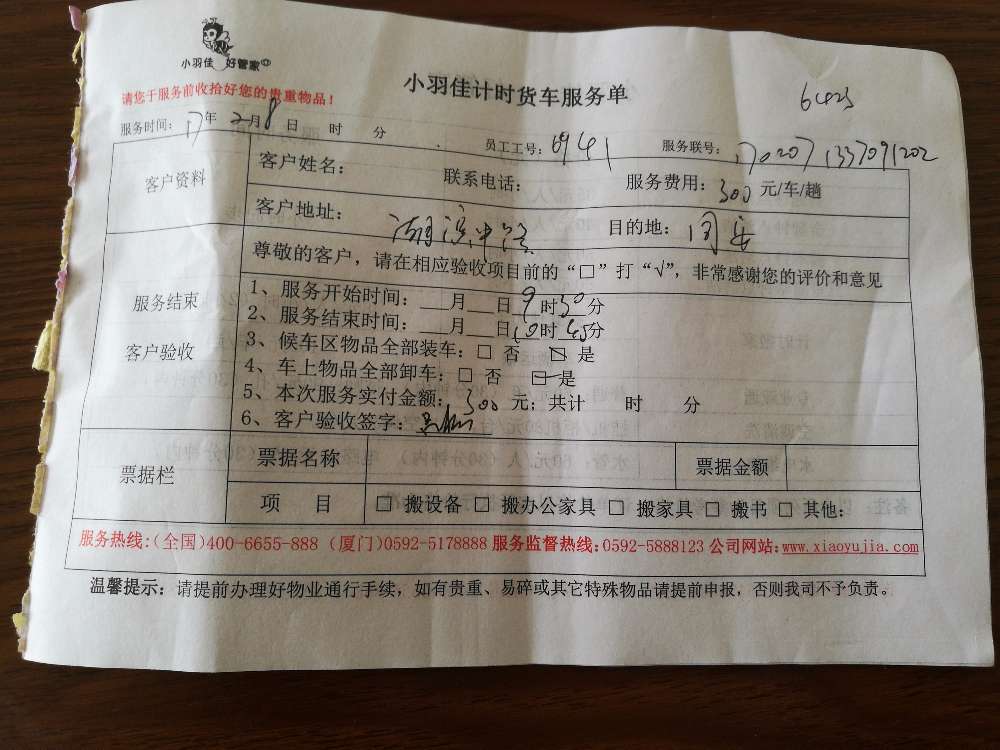 小羽佳 好管家
小羽佳计时货车服务单
请您于服务前收拾好您的贵重物品！
服务时间： 17年 2月 8日 时 分 员工工号：6941 服务联号：1702071337091202
客户资料
客户姓名： 联系电话： 服务费用：300元/车/趟
客户地址： 湖滨中路 目的地：同安
服务结束
客户验收
尊敬的客户，请在相应验收项目前的“□”打“√”，非常感谢您的评价和意见
1、服务开始时间：___月__日9时30分
2、服务结束时间：___月__日10时45分
3、候车区物品全部装车：□ 否 ☑ 是
4、车上物品全部卸车：□ 否 ☑ 是
5、本次服务实付金额：300元；共计 时 分
6、客户验收签字：
票据栏
票据名称 票据金额
项 目 □ 搬设备 □ 搬办公家具 □ 搬家具 □ 搬书 □ 其他：
服务热线：(全国)400-6655-888 (厦门)0592-5178888 服务监督热线：0592-5888123 公司网站：www.xiaoyujia.com
温馨提示：请提前办理好物业通行手续，如有贵重、易碎或其它特殊物品请提前申报，否则我司不予负责。